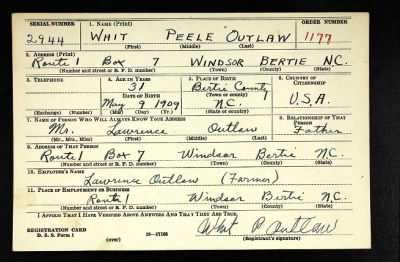 SERIAL NUMBER 1. NAME (Print) ORDER NUMBER
2944 WHIT PEELE OUTLAW 1177
(First) (Middle) (Last)
2. ADDRESS (Print)
Route 1 Box 7 WINDSOR BERTIE N.C.
(Number and street or R. F. D. number) (Town) (County) (State)
3. TELEPHONE 4. AGE IN YEARS 5. PLACE OF BIRTH 6. COUNTRY OF CITIZENSHIP
31 Bertie County
DATE OF BIRTH (Town or county)
May 9 1909 N.C. U.S.A.
(Exchange) (Number) (Mo.) (Day) (Yr.) (State or country)
7. NAME OF PERSON WHO WILL ALWAYS KNOW YOUR ADDRESS 8. RELATIONSHIP OF THAT PERSON
Mr. Lawrence Outlaw Father
(Mr., Mrs., Miss) (First) (Middle) (Last)
9. ADDRESS OF THAT PERSON
Route 1 Box 7 Windsor Bertie N.C.
(Number and street or R. F. D. number) (Town) (County) (State)
10. EMPLOYER'S NAME
Lawrence Outlaw (Farmer)
11. PLACE OF EMPLOYMENT OR BUSINESS
Route 1 Windsor Bertie N.C.
(Number and street or R. F. D. number) (Town) (County) (State)
I AFFIRM THAT I HAVE VERIFIED ABOVE ANSWERS AND THAT THEY ARE TRUE.
REGISTRATION CARD Whit P Outlaw
D. S. S. Form 1 (over) 16-17105 (Registrant's signature)